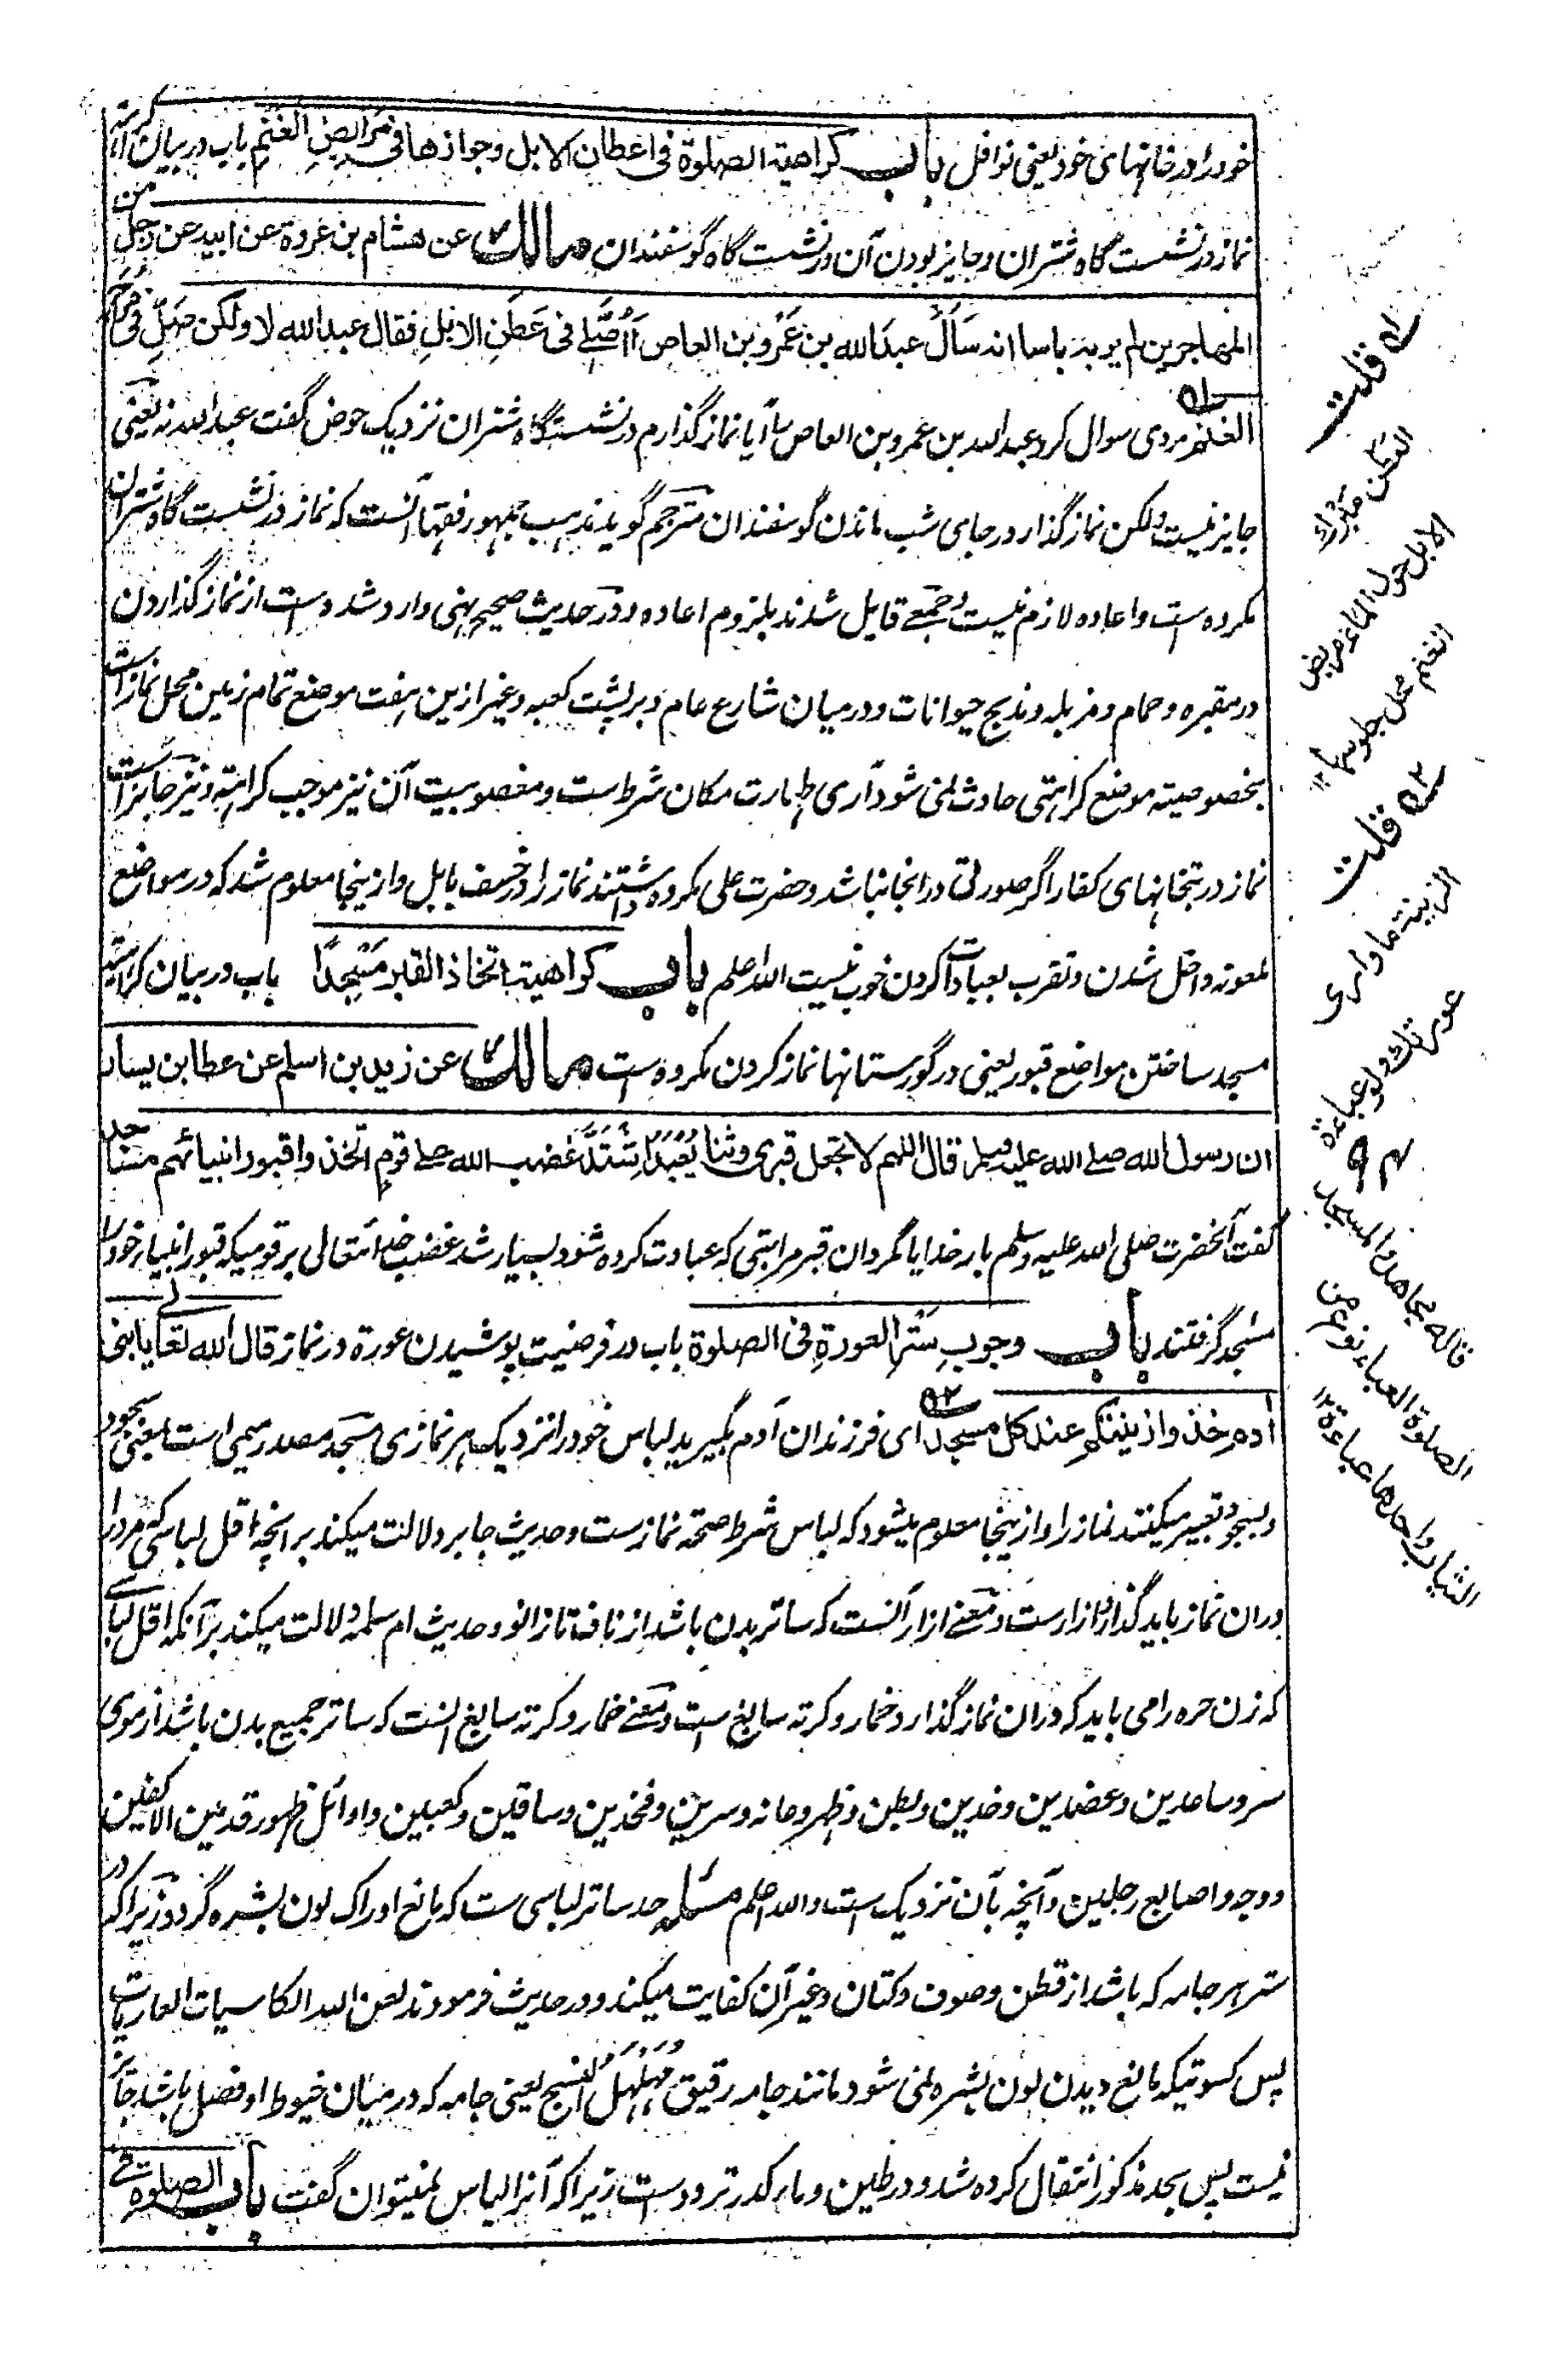 خود را در خانهای خود یعنی نوافل باب کراهیة الصلوة فی اعطان الابل وجوازها فی مرابض الغنم باب در بیان کراهیت
نماز در نشست گاه شتران و جایز بودن آن در نشست گاه گوسفندان مالک عن هشام بن عروة عن ابیه عن رجل من
المهاجرین لم یر به باسا انه سَاَلَ عبدَ الله بن عَمْرو بن العاص اَاُصَلّے فی عَطَنِ الابلِ فقال عبد الله لا ولکن صَلِّ فی مُرَاح
الغنم ۵۱ مردی سوال کرد عبد الله بن عمرو بن العاص را آیا نماز گذارم در نشستگاه شتران نزدیک حوض گفت عبد الله نه یعنی
جایز نیست ولکن نماز گذار در جای شب ماندن گوسفندان مترجم گوید مذهب جمهور فقها آنست که نماز در نشست گاه شتران
مکروه است و اعاده لازم نیست و جمعے قایل شدند بلزوم اعاده و در حدیث صحیح نهی وارد شده است از نماز گذاردن
در مقبره و حمام و مزبله و مذبح حیوانات و در میان شارع عام و بر پشت کعبه و غیر ازین هفت موضع تمام زمین محل نماز است
بخصوصیته موضع کراهتی حادث نمی شود آری طهارت مکان شرط ست و مغصوبیت آن نیز موجب کراهته و نیز جایز است
نماز در بتخانهای کفار اگر صورتی در انجا نباشد و حضرت علی مکروه داشتند نماز را در خسف بابل و ازینجا معلوم شد که در مواضع
ملعونه داخل شدن و تقرب بعبادات کردن خوب نیست الله اعلم باب کراهیت اتخاذ القبر مَسْجِدًا باب در بیان کراهیت
مسجد ساختن مواضع قبور یعنی در گورستانها نماز کردن مکروه است مالک عن زید بن اسلم عن عطا بن یسار
ان رسول الله صلے الله علیه وسلم قال اللهم لا تجعل قبری وثنا یُعْبَدُ اِشْتَدَّ غضب الله علے قوم اتخذوا قبور انبیائهم مساجد
گفت آنحضرت صلی الله علیه وسلم بار خدایا مگردان قبر مرا بتی که عبادت کرده شود بسیار شد غضب خدا تعالی بر قومیکه قبور انبیاء خود را
مسجد گرفتند باب وجوبِ سَتْرِ العورةِ فی الصلوة باب در فرضیت پوشیدن عورة در نماز قال الله تعالے یا بنی
اٰدم خذوا زینتکم عند کل مسجد ۵۲ ای فرزندان آدم بگیرید لباس خود را نزدیک هر نمازی مسجد مصدر میمی است بمعنی سجود
و بسجود تعبیر میکنند نماز را و ازینجا معلوم میشود که لباس شرط صحته نماز ست و حدیث جابر دلالت میکند بر انچه اقل لباسی که مرد را
دران نماز باید گذارد ازار ست و معنے ازار آنست که ساتر بدن باشد از ناف تا زانو و حدیث ام سلمه دلالت میکند بر آنکه اقل لباسے
که زن حره را می باید که دران نماز گذارد خمار و کرته سابغ است و معنے خمار و کرته سابغ انست که ساتر جمیع بدن باشد از موی
سر و ساعدین و عضدین و خدین و بطن و ظهر و عانه و سرین و فخذین و ساقین و کعبین و اوائل ظهور قدمین الا کفین
و وجه و اصابع رجلین و آنچه بآن نزدیک است والله اعلم مسئله حد ساتر لباسی ست که مانع ادراک لون بشره گردد زیرا که در
ستر هر جامه که باشد از قطن و صوف و کتان و غیر آن کفایت میکند و در حدیث فرمودند لعن الله الکاسیات العاریات
پس کسوتیکه مانع دیدن لون بشره نمی شود مانند جامه رقیق مُهَلْهَلُ النسج یعنی جامه که در میان خیوط او فصل باشد جائز
نیست پس بحد مذکور انتقال کرده شد و در طین و ماء کدر تردد ست زیرا که آنرا لباس نمیتوان گفت باب الصلوة فے
۵۱ قلت
العطن مبرك
الابل حول الماء مربض
الغنم محل جلوسها ۱۲
۵۲ قلت
الزینة ما واری
عورتك ولو عباءة
قاله مجاهد والمسجد
الصلوة العباء نوع من
الثیاب واحدها عباءة ۱۲